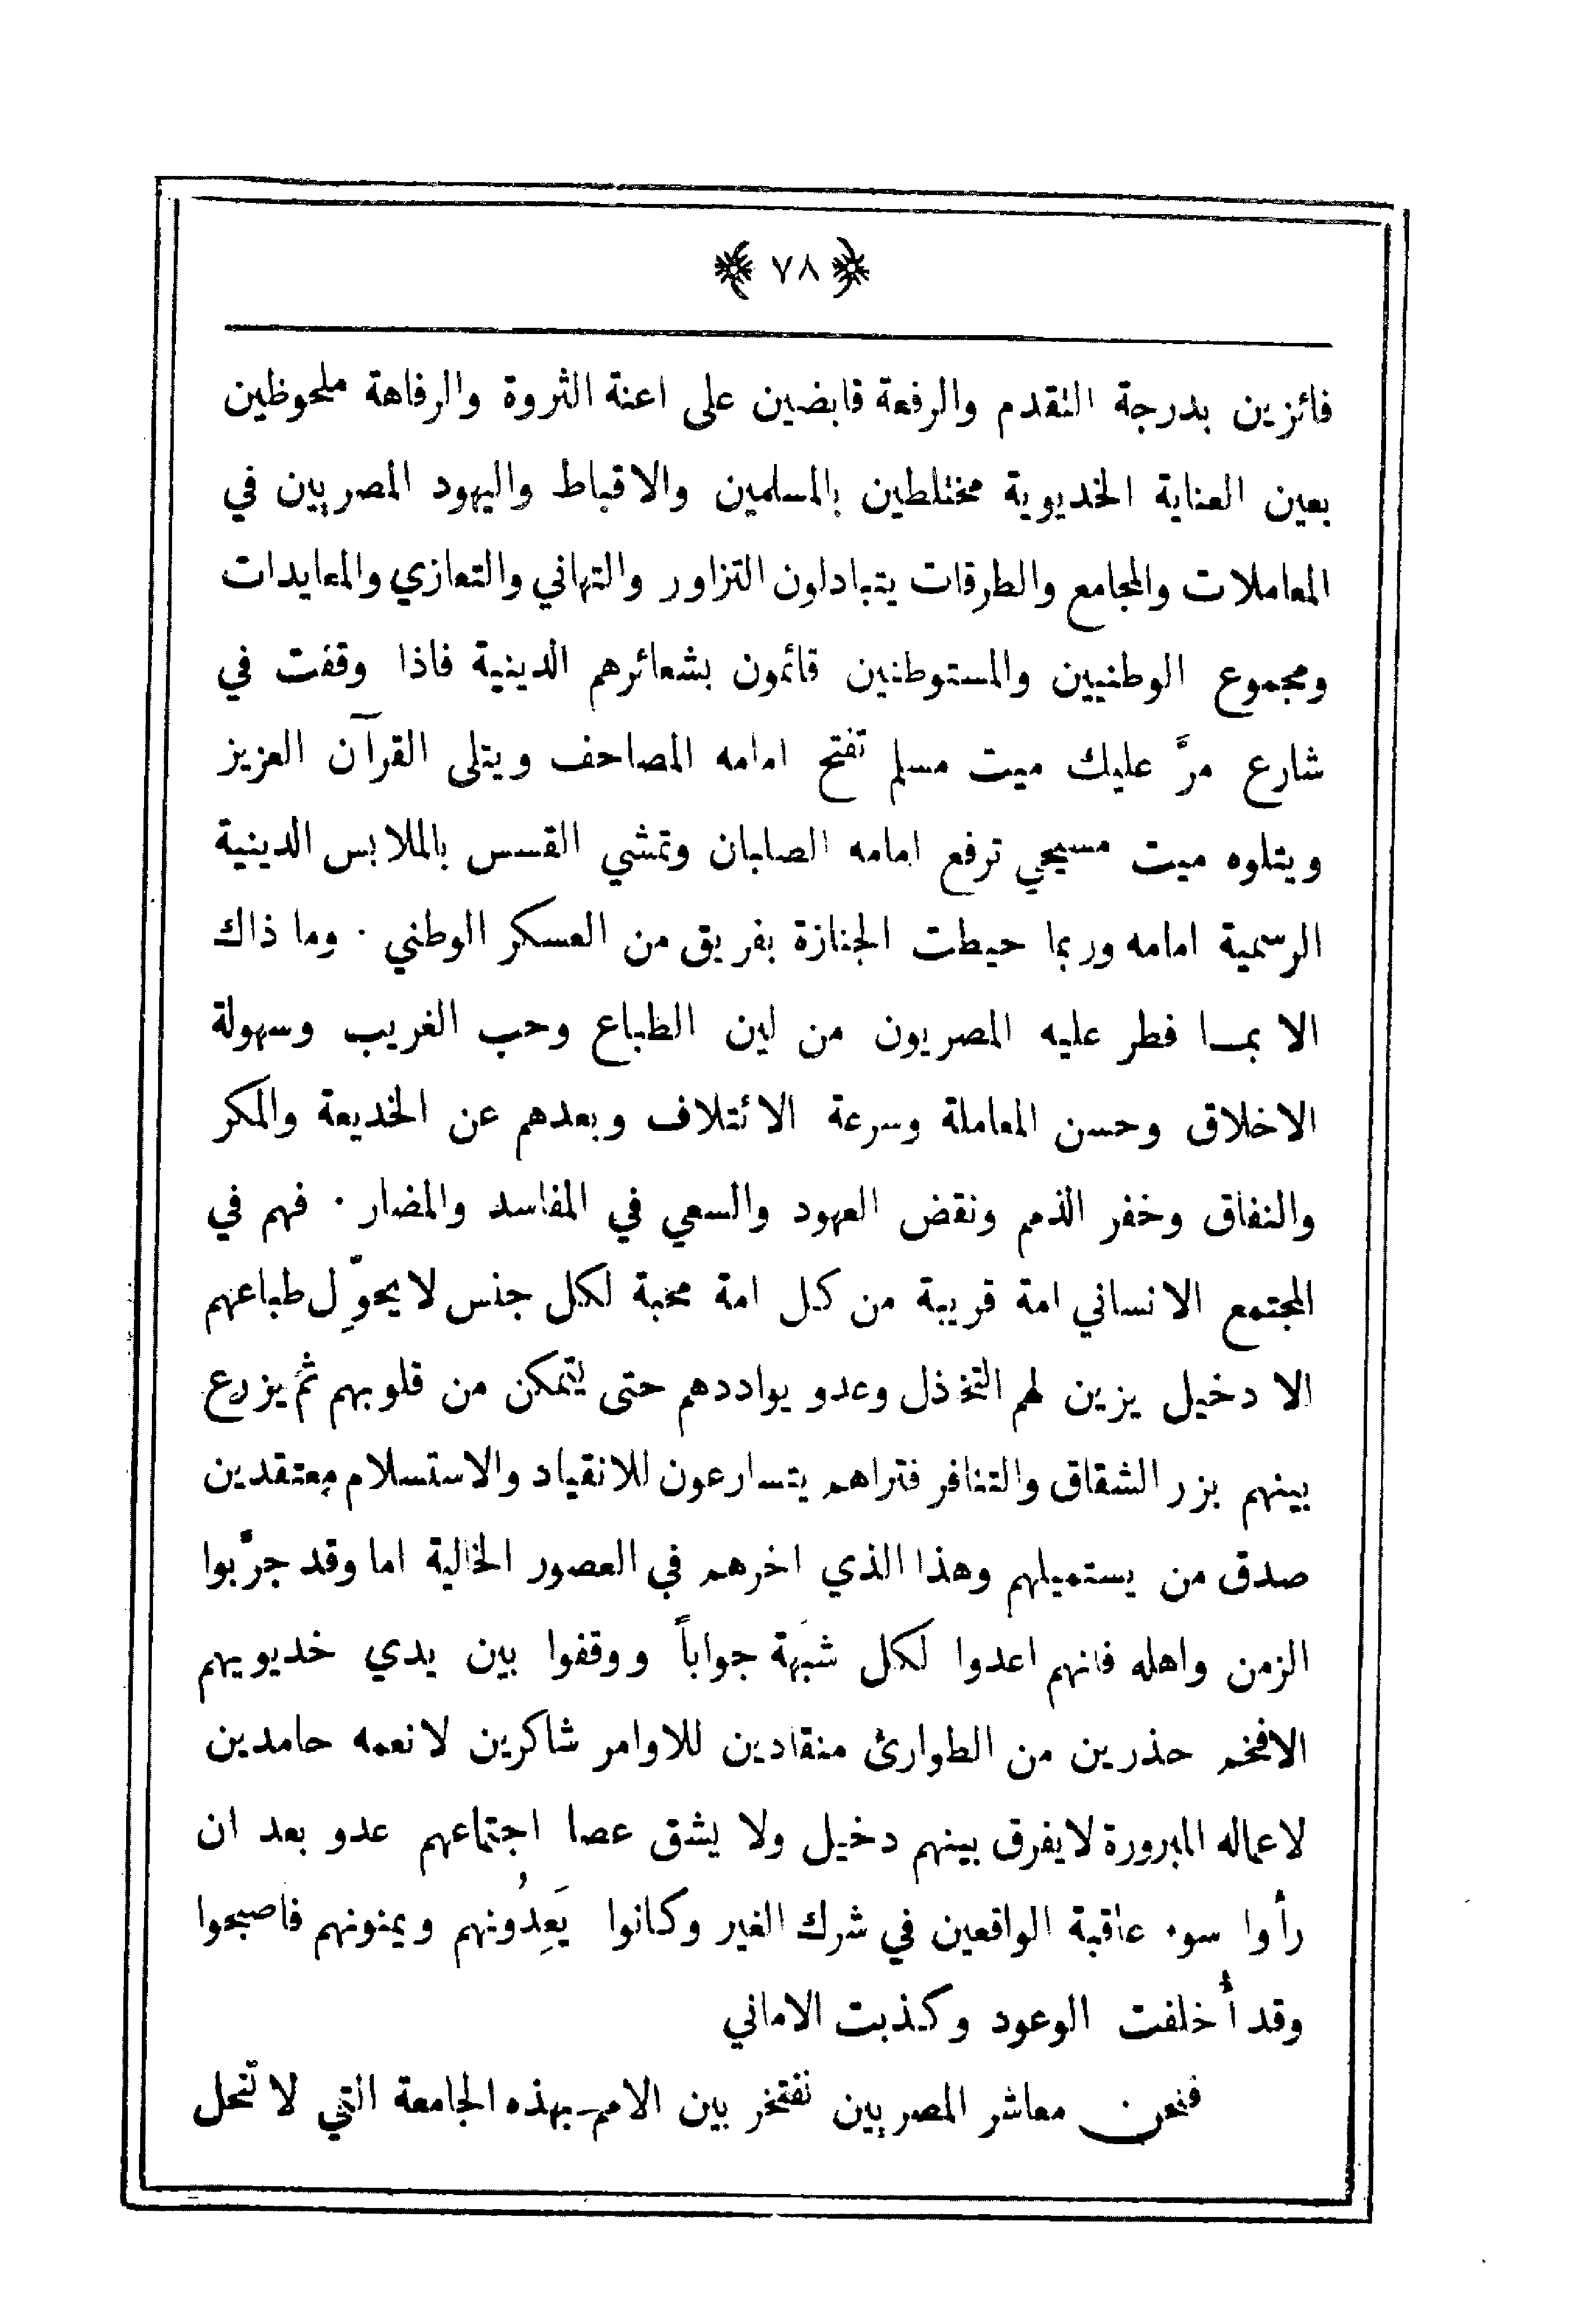 ٧٨
فائزين بدرجة التقدم والرفعة قابضين على اعنة الثروة والرفاهة ملحوظين
بعين العناية الخديوية مختلطين بالمسلمين والاقباط واليهود المصريين في
المعاملات والمجامع والطرقات يتبادلون التزاور والتهاني والتعازي والمعايدات
ومجموع الوطنيين والمستوطنين قائمون بشعائرهم الدينية فاذا وقفت في
شارع مرَّ عليك ميت مسلم تفتح امامه المصاحف ويتلى القرآن العزيز
ويتلوه ميت مسيحي ترفع امامه الصلبان وتمشي القسس بالملابس الدينية
الرسمية امامه وربما حيطت الجنازة بفريق من العسكر الوطني . وما ذاك
الا بمـا فطر عليه المصريون من لين الطباع وحب الغريب وسهولة
الاخلاق وحسن المعاملة وسرعة الائتلاف وبعدهم عن الخديعة والمكر
والنفاق وخفر الذمم ونقض العهود والسعي في المفاسد والمضار . فهم في
المجتمع الانساني امة قريبة من كل امة محبة لكل جنس لا يحوِّل طباعهم
الا دخيل يزين لهم التخذل وعدو يواددهم حتى يتمكن من قلوبهم ثمَّ يزرع
بينهم بزر الشقاق والتنافر فتراهم يتسارعون للانقياد والاستسلام معتقدين
صدق من يستميلهم وهذا الذي اخرهم في العصور الخالية اما وقد جرَّبوا
الزمن واهله فانهم اعدوا لكل شبهة جواباً ووقفوا بين يدي خديويهم
الافخم حذرين من الطوارئ منقادين للاوامر شاكرين لانعمه حامدين
لاعماله المبرورة لا يفرق بينهم دخيل ولا يشق عصا اجتماعهم عدو بعد ان
رأوا سوء عاقبة الواقعين في شرك الغير وكانوا يَعِدُونهم ويمنونهم فاصبحوا
وقد أُخلفت الوعود وكذبت الاماني
فنحن معاشر المصريين نفتخر بين الامم بهذه الجامعة التي لا تنحل